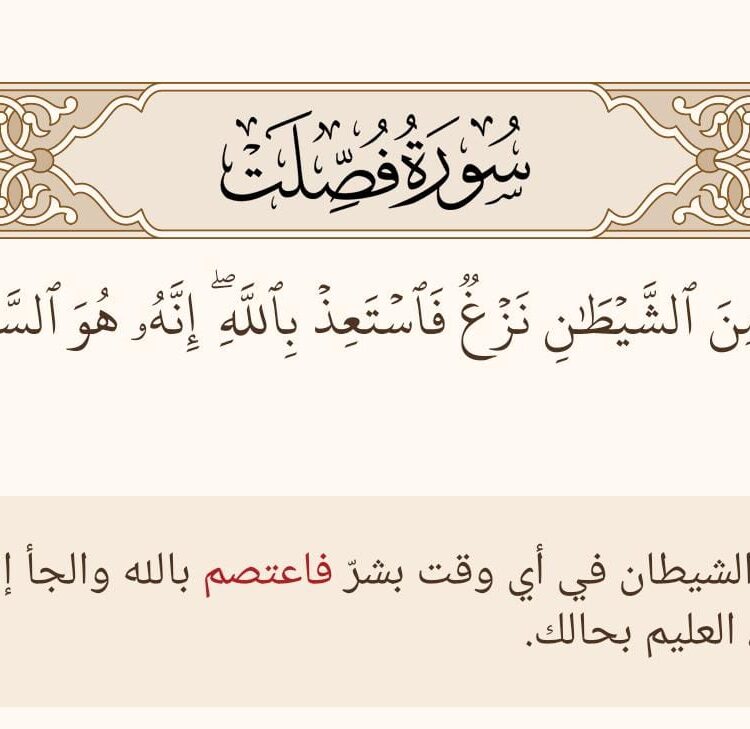 سُورَةُ فُصِّلَتْ
ٱلشَّيْطَٰنِ نَزْغٌ فَٱسْتَعِذْ بِٱللَّهِ ۖ إِنَّهُۥ هُوَ
الشيطان في أي وقت بشرّ فاعتصم بالله والجأ
العليم بحالك.